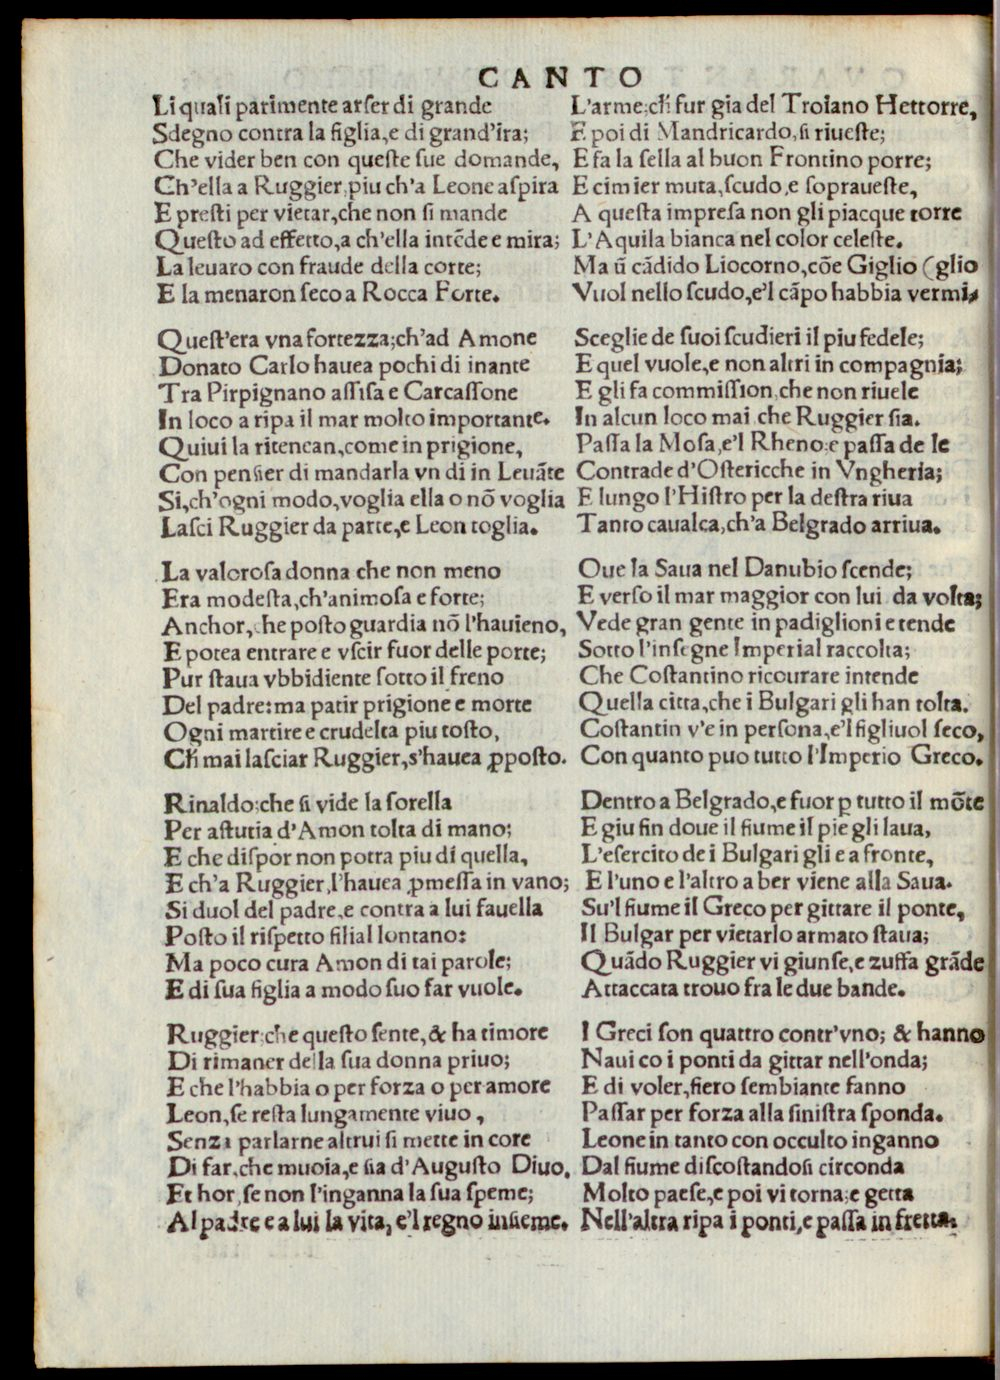 CANTO
Li quali parimente arser di grande
Sdegno contra la figlia, e di grand'ira;
Che vider ben con queste sue domande,
Ch'ella a Ruggier, piu ch'a Leone aspira
E presti per vietar, che non si mande
Questo ad effetto, a ch'ella intẽde e mira;
La leuaro con fraude della corte;
E la menaron seco a Rocca Forte.
Quest'era vna fortezza; ch'ad Amone
Donato Carlo hauea pochi di inante
Tra Pirpignano assisa e Carcassone
In loco a ripa il mar molto importante.
Quiui la ritenean, come in prigione,
Con pensier di mandarla vn di in Leuãte
Si, ch'ogni modo, voglia ella o nõ voglia
Lasci Ruggier da parte, e Leon toglia.
La valorosa donna che non meno
Era modesta, ch'animosa e forte;
Anchor, che posto guardia nõ l'hauieno,
E potea entrare e vscir fuor delle porte;
Pur staua vbbidiente sotto il freno
Del padre: ma patir prigione e morte
Ogni martire e crudelta piu tosto,
Ch̃ mai lasciar Ruggier, s'hauea ꝓposto.
Rinaldo: che si vide la sorella
Per astutia d'Amon tolta di mano;
E che dispor non potra piu di quella,
E ch'a Ruggier, l'hauea ꝓmessa in vano;
Si duol del padre, e contra a lui fauella
Posto il rispetto filial lontano:
Ma poco cura Amon di tai parole;
E di sua figlia a modo suo far vuole.
Ruggier: che questo sente, & ha timore
Di rimaner della sua donna priuo;
E che l'habbia o per forza o per amore
Leon, se resta lungamente viuo,
Senza parlarne altrui si mette in core
Di far, che muoia, e sia d'Augusto Diuo,
Et hor, se non l'inganna la sua speme;
Al padre e a lui la vita, e'l regno insieme.
L'arme; ch̃ fur gia del Troiano Hettorre,
E poi di Mandricardo, si riueste;
E fa la sella al buon Frontino porre;
E cimier muta, scudo, e soprauueste,
A questa impresa non gli piacque torre
L'Aquila bianca nel color celeste.
Ma ũ cãdido Liocorno, cõe Giglio (glio
Vuol nello scudo, e'l cãpo habbia vermi-
Sceglie de suoi scudieri il piu fedele;
E quel vuole, e non altri in compagnia;
E gli fa commission, che non riuele
In alcun loco mai che Ruggier sia.
Passa la Mosa, e'l Rheno: e passa de le
Contrade d'Ostericche in Vngheria;
E lungo l'Histro per la destra riua
Tanto caualca, ch'a Belgrado arriua.
Oue la Saua nel Danubio scende;
E verso il mar maggior con lui da volta;
Vede gran gente in padiglioni e tende
Sotto l'insegne Imperial raccolta;
Che Costantino ricourare intende
Quella citta, che i Bulgari gli han tolta.
Costantin v'e in persona, e'l figliuol seco,
Con quanto puo tutto l'Imperio Greco.
Dentro a Belgrado, e fuor ꝑ tutto il mõte
E giu fin doue il fiume il pie gli laua,
L'esercito de i Bulgari gli e a fronte,
E l'uno e l'altro a ber viene alla Saua.
Su'l fiume il Greco per gittare il ponte,
Il Bulgar per vietarlo armato staua;
Quãdo Ruggier vi giunse, e zuffa grãde
Attaccata trouo fra le due bande.
I Greci son quattro contr'vno; & hanno
Naui co i ponti da gittar nell'onda;
E di voler, fiero sembiante fanno
Passar per forza alla sinistra sponda.
Leone in tanto con occulto inganno
Dal fiume discostandosi circonda
Molto paese, e poi vi torna: e getta
Nell'altra ripa i ponti, e passa in fretta.